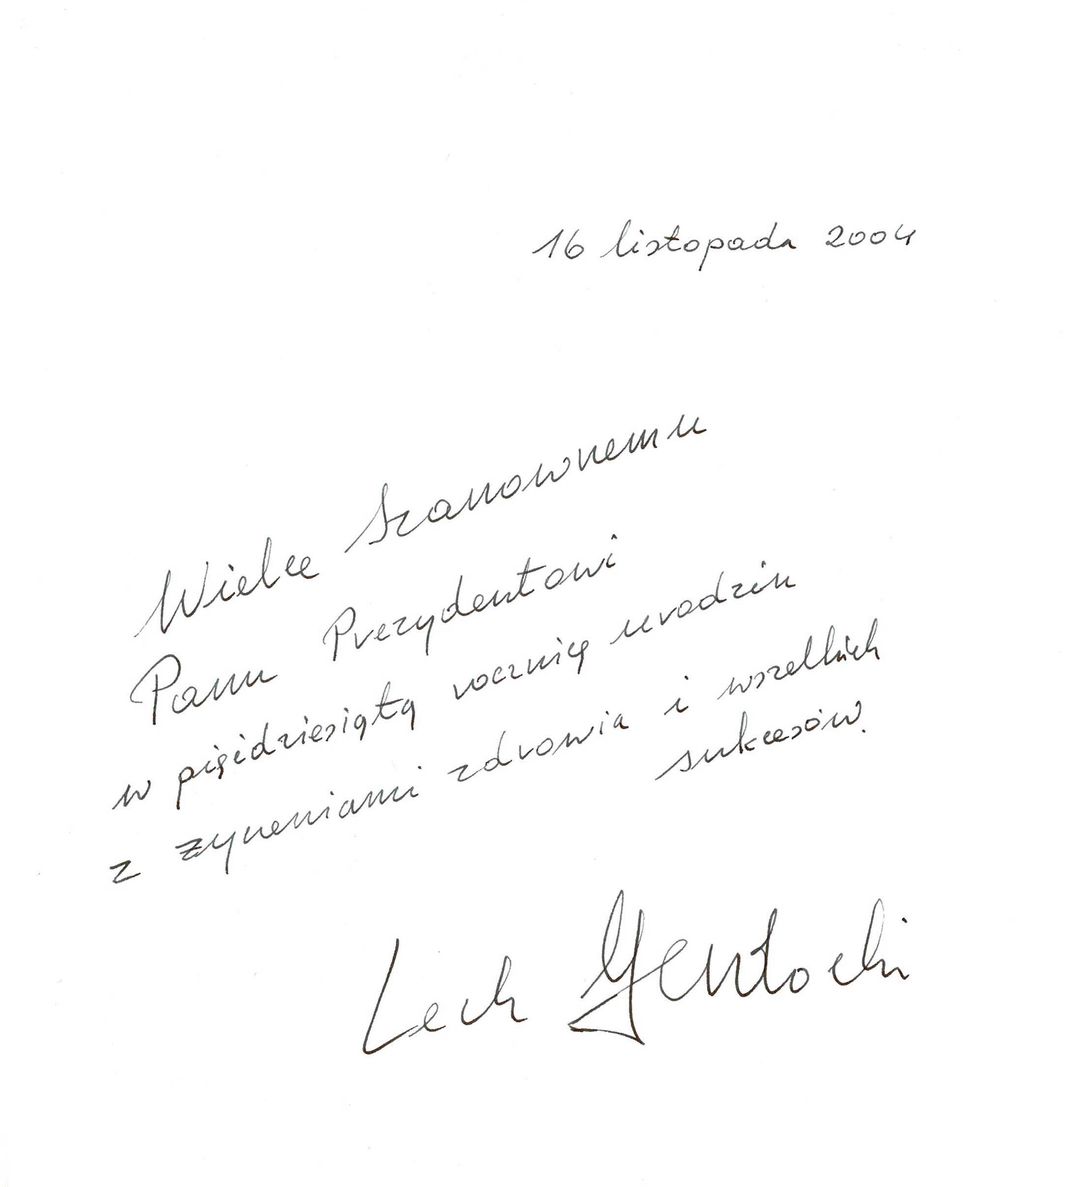 16 listopada 2004
Wielce Szanownemu
Panu Prezydentowi
w pięćdziesiątą rocznicę urodzin
z życzeniami zdrowia i wszelkich
sukcesów.
Lech